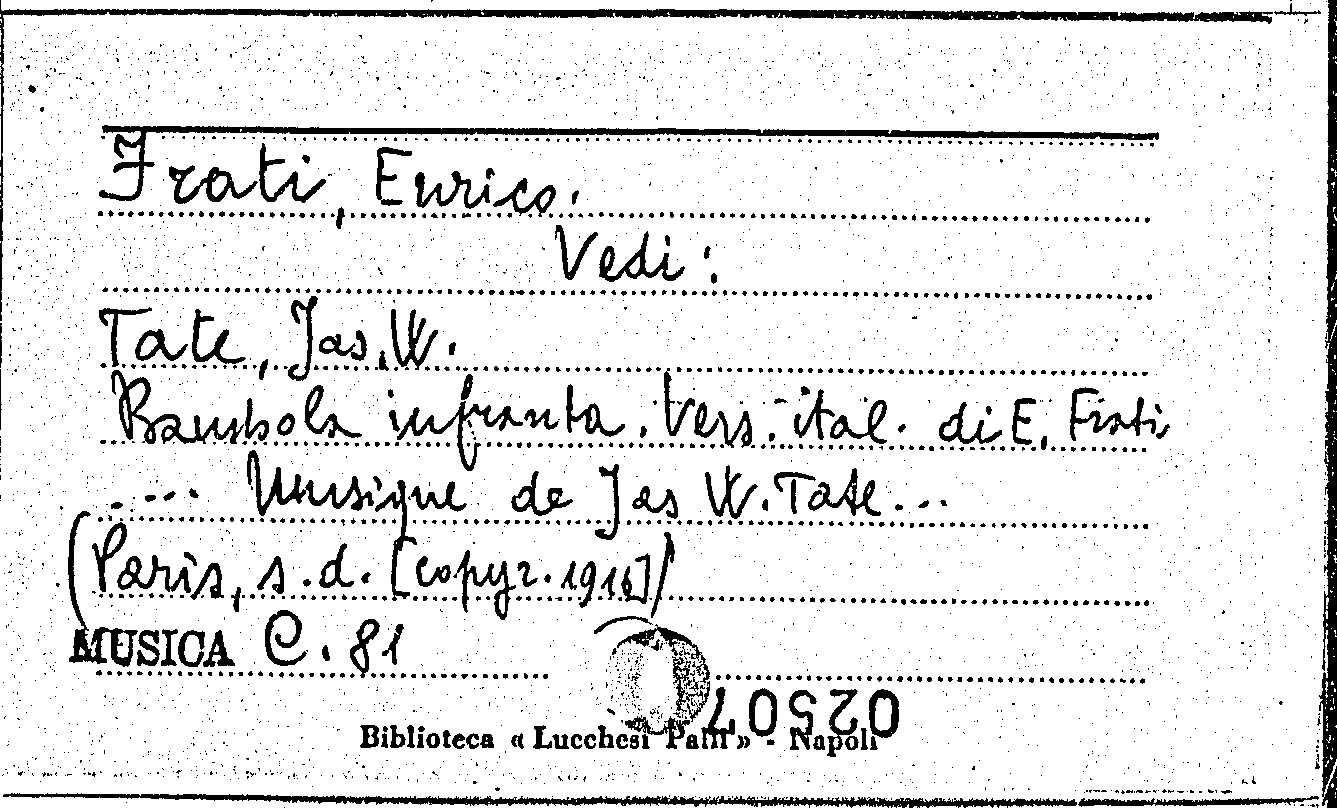 Frati, Enrico.
Vedi:
Tate, Jas. W.
Bambola infranta. Vers. ital. di E. Frati
.... Musique de Jas W. Tate...
(Paris, s.d. [copyr. 1916])
MUSICA C. 81
02507
Biblioteca « Lucchesi Palli » - Napoli